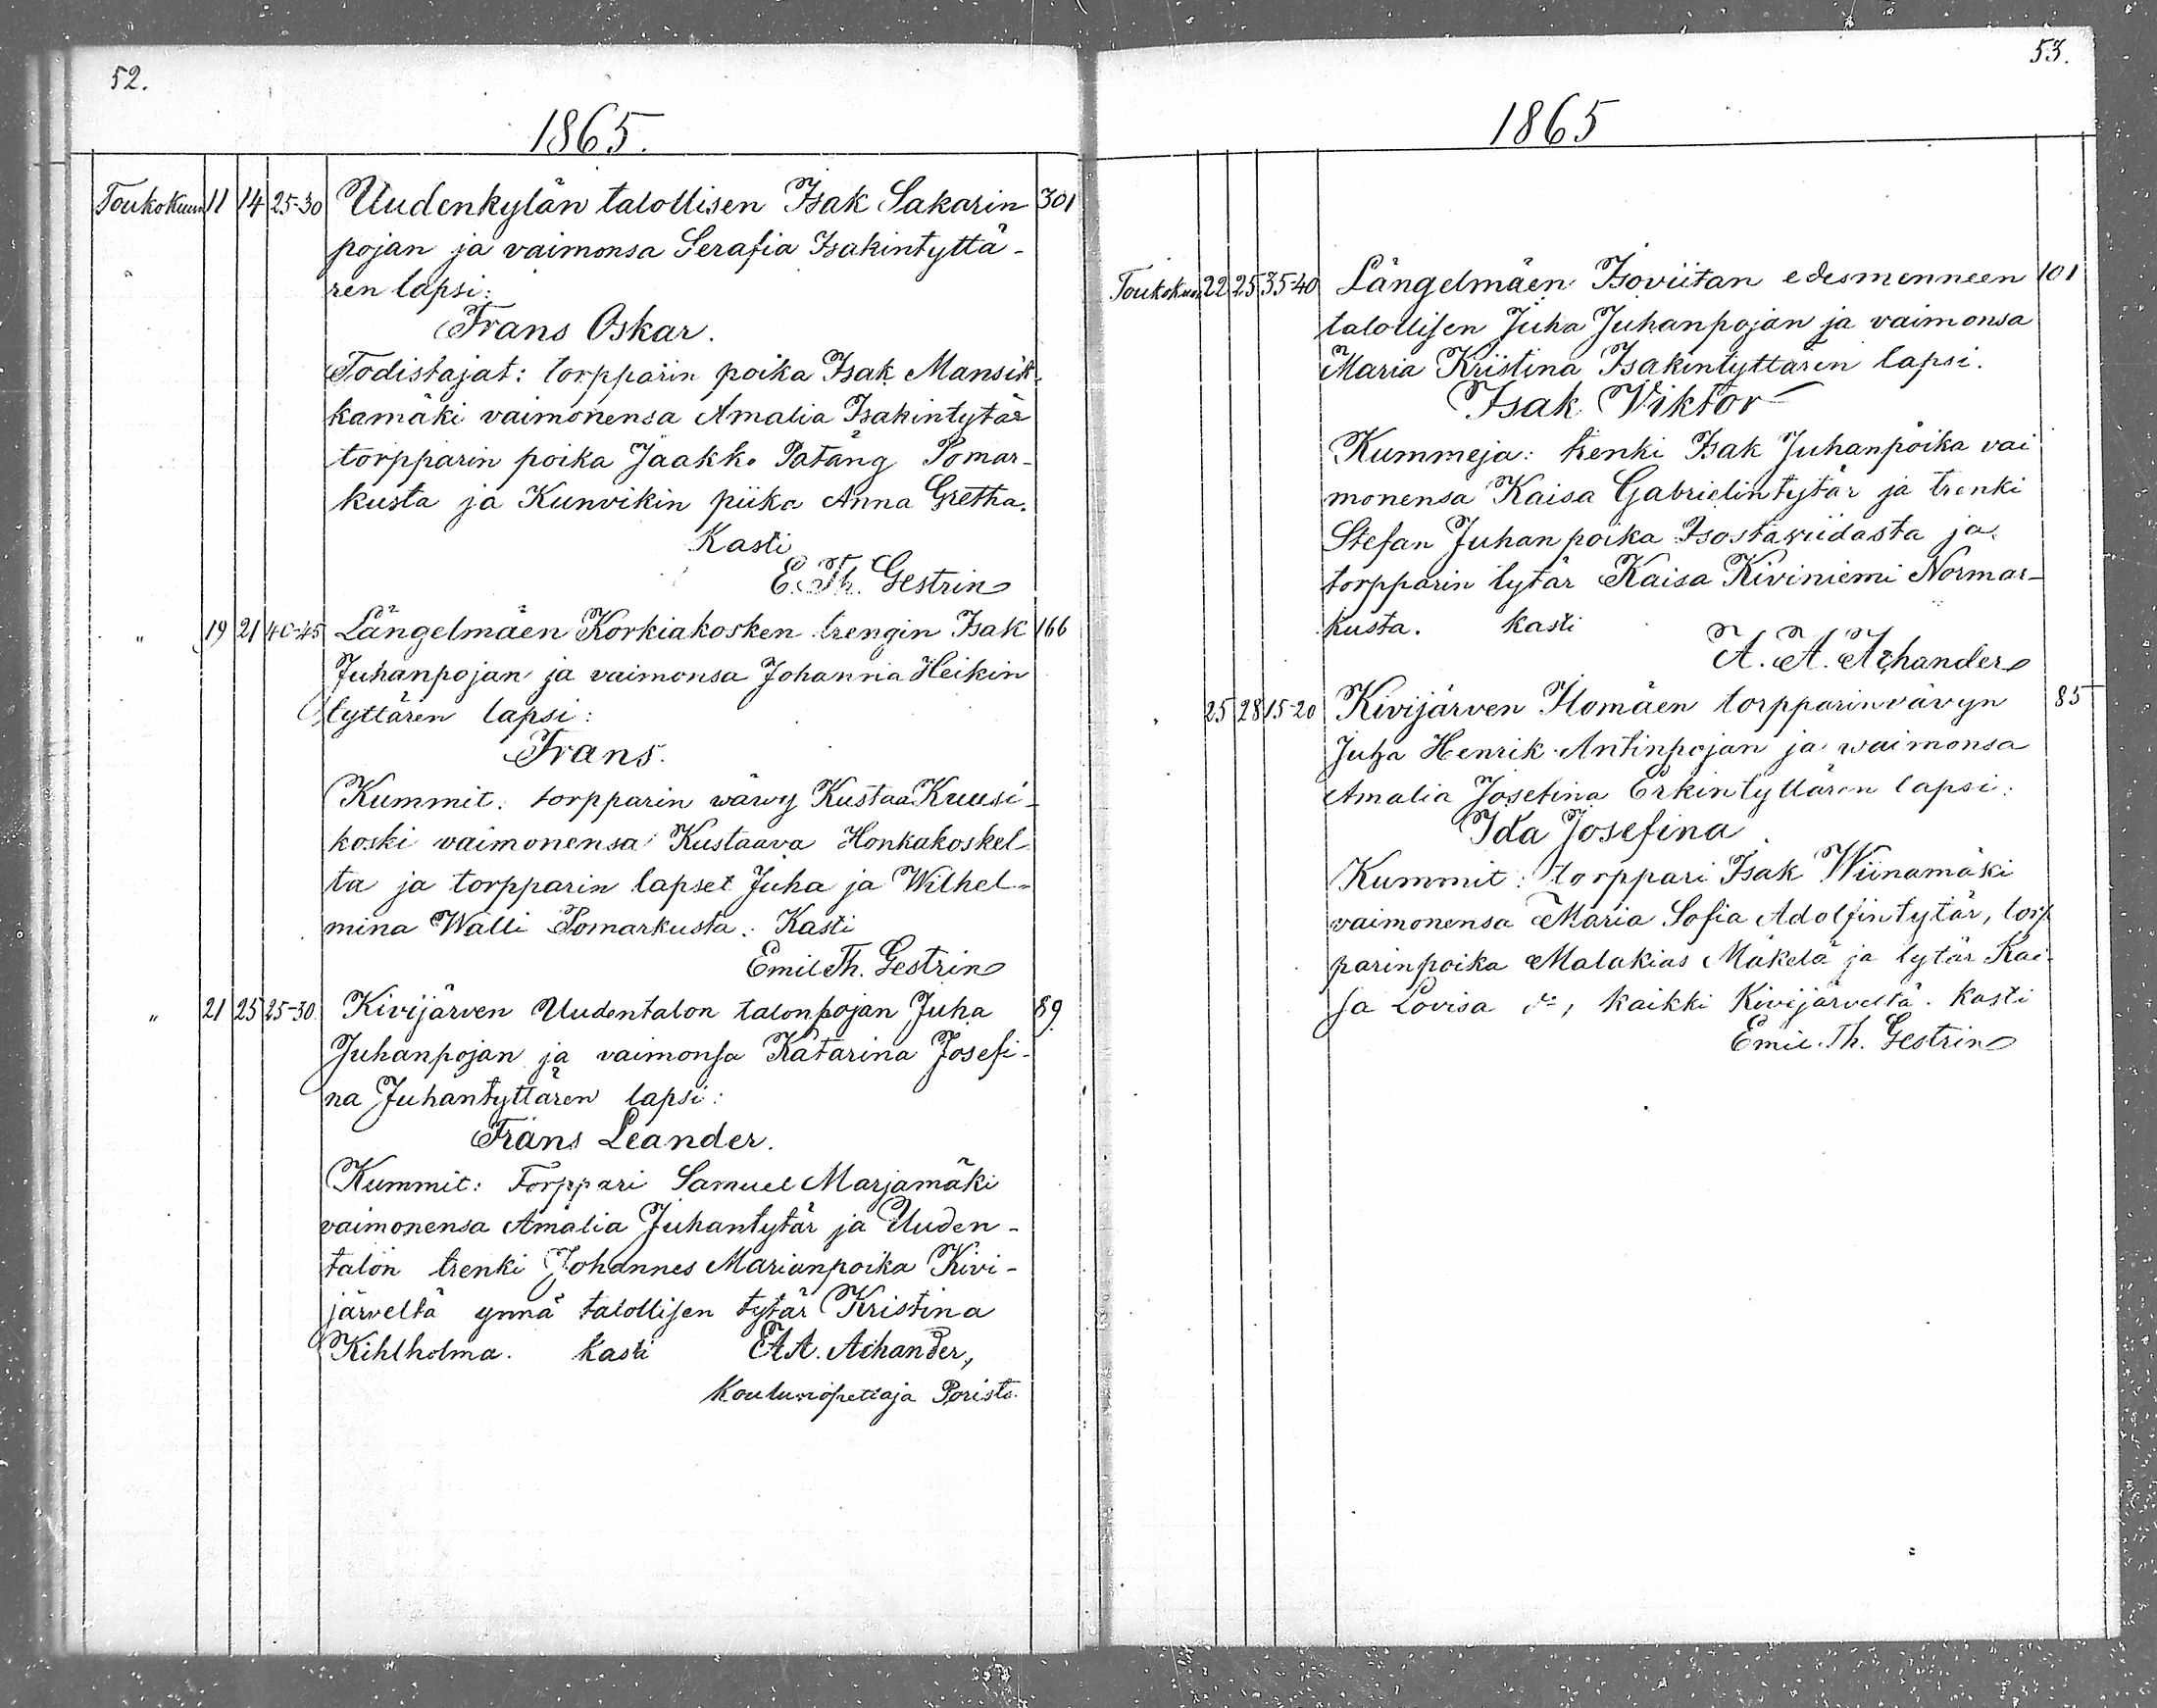 52.
1865.
Toukokuun 11 14 25-30 Uudenkylän talollisen Isak Sakarin 301
pojan ja vaimonsa Serafia Isakintyttä-
ren lapsi:
Frans Oskar.
Todistajat: torpparin poika Isak Mansik-
kamäki vaimonensa Amalia Isakintytär
torpparin poika Jaakko Patäng Pomar-
kusta ja Kunvikin piika Anna Gretha.
Kasti
E. Th. Gestrin
" 19 21 40-45 Längelmäen Korkiakosken trengin Isak 166
Juhanpojan ja vaimonsa Johanna Heikin
tyttären lapsi:
Frans.
Kummit: torpparin wäwy Kustaa Kuusi-
koski vaimonensa Kustaava Honkakoskel-
ta ja torpparin lapset Juha ja Wilhel-
mina Walli Pomarkusta. Kasti
Emil Th. Gestrin
" 21 25 25-30 Kivijärven Uudentalon talonpojan Juha 89
Juhanpojan ja vaimonsa Katarina Josefi-
na Juhantyttären lapsi:
Frans Leander.
Kummit: Torppari Samuel Marjamäki
vaimonensa Amalia Juhantytär ja Uuden-
talon trenki Johannes Marianpoika Kivi-
järveltä ynnä talollisen tytär Kristina
Kihlholma. Kasti A. A. Achander,
Koulunopettaja Porista.
53.
1865
Toukokuun 22 25 35-40 Längelmäen Isoviitan edesmenneen 101
talollisen Juha Juhanpojan ja vaimonsa
Maria Kristina Isakintyttären lapsi.
Isak Viktor
Kummeja: trenki Isak Juhanpoika vai
monensa Kaisa Gabrielintytär ja trenki
Stefan Juhanpoika Isostawiidasta ja
torpparin tytär Kaisa Kiviniemi Normar-
kusta. Kasti
A. A. Achander
25 28 15-20 Kivijärven Ilomäen torpparinvävyn 85
Juha Henrik Antinpojan ja waimonsa
Amalia Josefina Erkintyttären lapsi:
Ida Josefina.
Kummit: torppari Isak Wiinamäki
vaimonensa Maria Sofia Adolfintytär, torp
parinpoika Malakias Mäkelä ja tytär Kai-
sa Lovisa d:o, kaikki Kivijärveltä. Kasti
Emil. Th. Gestrin